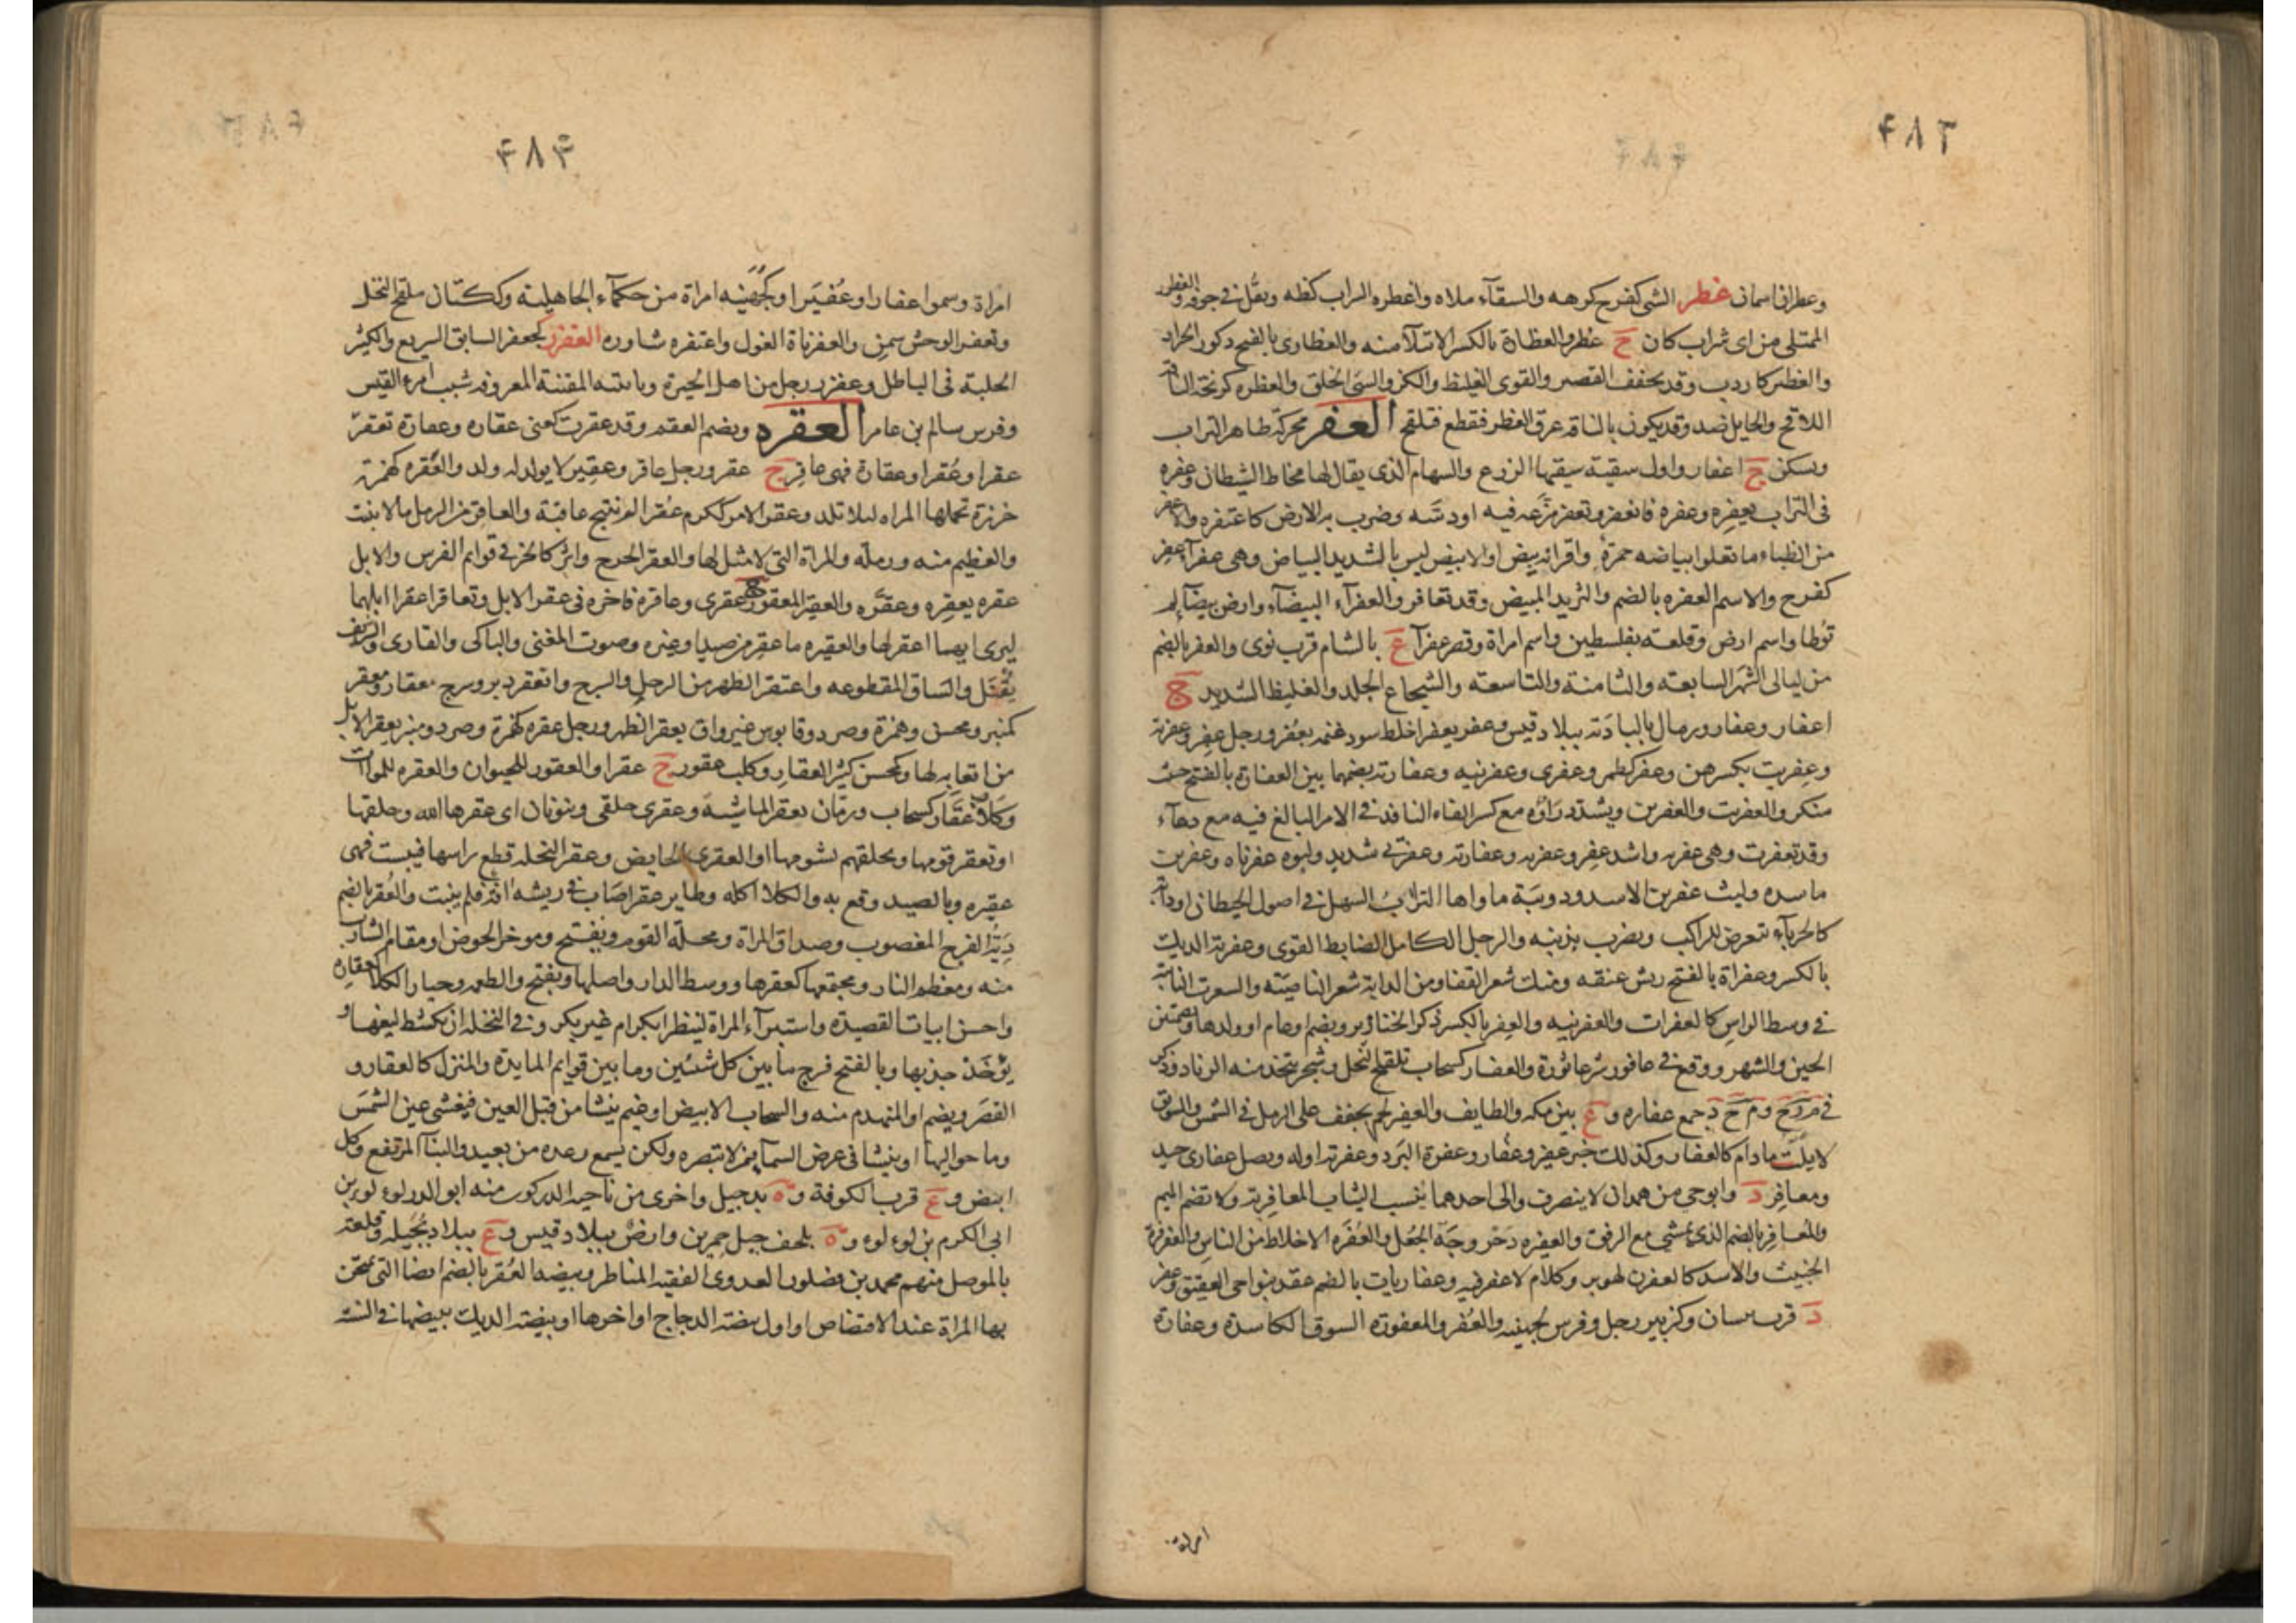 ۴۸۲
وعطرانا سمان عظر الشى كفرح كرهه والسقآء ملاه واعظره الراب كظه وثقل فى جوفه والعظور
الممتلى من اى شراب كان ج عظر والعظارة بالكسر الامتلآ منه والعظارى بالفتح ذكور الجراد
والعظير كاردب وقد يخفف القصير والقوى الغليظ والكز والسيئ الخلق والعظره كزنخة الناقة
اللاقح والحايل ضد وقد يكون بالناقه عرق العظر فقطع فتلقح العفر محركة ظاهر التراب
ويسكن ج اعفار واول سقية سقيها الزرع والسهام الذى يقال لها مخاط الشيطان وعفره
فى التراب يعفره وعفره فانعفر وتعفر مرغه فيه او دسه وضرب به الارض كاعتفره والاعفر
من الظباء ما تعلوا بياضه حمرة واقرانه بيض او الابيض ليس بالشديد البياض وهى عفرآ عفر
كفرح والاسم العفره بالضم والثريد المبيض وقد تعافر والعفرآء البيضآء وارض بيضآ لم
توطا واسم ارض وقلعه بفلسطين واسم امراة وقصر عفرآ ع بالشام قرب نوى والعفر بالضم
من ليالى الشهر السابعه والثامنة والتاسعه والشجاع الجلد والغليظ الشديد ج
اعفار وعفار ورمال بالبادية ببلاد قيس وعفر يعفر اخلط سود غنمه بعفر ورجل عفر وعفرية
وعفريت بكسرهن وعفر كطمر وعفرى وعفرنيه وعفارية بضمهما بين العفارة بالفتح خبث
منكر والعفريت والعفرين ويشدد راؤه مع كسر الفاء النافذ فى الامر المبالغ فيه مع دهآء
وقد تعفرت وهى عفريه واسد عفر وعفريه وعفاريه وعفرنى شديد ولبوه عفرناه وعفرين
ماسده وليث عفرين الاسد ودويبة ماواها التراب السهل فى اصول الحيطان او دابة
كالحربآء تتعرض للراكب وتضرب بذنبه والرجل الكامل الضابط القوى وعفرية الديك
بالكسر وعفراة بالفتح ريش عنقه ومنك شعر القفا ومن الدابة شعر الناصية والشعرت النابتة
فى وسط الراس كالعفرات والعفرنيه والعفر بالكسر ذكر الخنازير ويضم او عام او ولدها وبضمتين
الحين والشهر ووقع فى عافور شر عاثوره والعفار كسحاب تلقيح النخل وشجر يتخذ منه الزناد وذكر
فى مرخ وم ح د جمع عفاره وع بين مكه والطايف والعفير لحم يجفف على الرمل فى الشمس والسويق
لا يلت مادام كالعفار وكذلك خبز عفير وعفار وعفرة البرد وعفرته اوله وبصل عفارى جيد
ومعافر د وابوحى من همدان لا ينصرف والى احدهما ينسب الثياب المعافرية ولا تضم الميم
والمعافر بالضم الذى يمشى مع الرفق والعفيره دحروجة الجعل والعفره الاخلاط من الناس والعفرفرة
الخبيث والاسد كالعفرن لهوبر وكلام لا عفر فيه وعفاريات بالضم عقد بنواحى العقيق وعفر
د قرب بيسان وكزبير رجل وفرس لجهينه والعفر والمعفوره السوق الكاسدة وعفارة
امراة
۴۸۳
امراة وسموا عفارا وعفيرا وكجهينه امراة من حكمآء الجاهلية وككتان ملقح النخل
وتعفر الوحش سمن والعفرناة الغول واعتفره ساوره العفزر كجعفر السابق السريع والكثير
الجلبة فى الباطل وعفزر رجل من اهل الحيرة وبابنته المقننة المعروفه شبب امرء القيس
وفرس سالم بن عامر العقره وبضم العقم وقد عقرت كعنى عقاره وعقارة تعقر
عقرا وعقرا وعقارة فهى عاقر ج عقر ورجل عاقر وعقير لا يولد له ولد والعقره كهمزة
خرزة تحملها المراه لئلا تلد وعقر الامر ككرم عقرا لم ينتج عاقبة والعاقر من الرمل مالا ينبت
والعظيم منه ورمله والمراة التى لا مثل لها والعقر الجرح واثر كالحز فى قوايم الفرس والابل
عقره يعقره وعقره والعقير المعقور ج عقرى وعاقره فاخره فى عقر الابل وتعاقرا عقرا ابلهما
ليرى ايهما اعقر لها والعقيره ما عقر من صيد او غيره وصوت المغنى والباكى والقارى والشريف
يقتل والساق المقطوعه واعتقر الظهر من الرحل والسرج وانعقر دبر وسرج معقار ومعقر
كمنبر ومحسن وهمزة وصرد وقابوس غير واق يعقر الظهر ورجل عقره كهمزة وصرد ومنبر يعقر الابل
من اتعابه لها وكمحسن كثير العقار وكلب عقور ج عقر او العقور للحيوان والعقره للموات
وكلاء عقار كسحاب ورمان يعقر الماشية وعقرى حلقى وينونان اى عقرها الله وحلقها
او تعقر قومها وتحلقهم بشومها او العقرى الحايض وعقر النخله قطع راسها فيبست فهى
عقيره وبالصيد وقع به والكلا اكله وطاير عقر اصاب فى ريشه آفة فلم ينبت والعقر بالضم
دية الفرج المغصوب وصداق المراة ومحلة القوم ويفتح وموخر الحوض او مقام الشارب
منه ومعظم النار ومجتمعها كعقرها ووسط الدار واصلها ويفتح والطعمه وخيار الكلا كعقاره
واحسن ابيات القصيدة واستبرآء المراة لينظر ابكر ام غير بكر وفى النخله ان تكشط ليفها و
يؤخذ جذبها وبالفتح فرج ما بين كل شيئين وما بين قوايم المايدة والمنزل كالعقار و
القصر ويضم او المنهدم منه والسحاب الابيض او غيم ينشا من قبل العين فيغشى عين الشمس
وما حواليها او ينشا فى عرض السمآ يمر لا تبصره ولكن يسمع رعده من بعيد والبنآ المرتفع وكل
ابيض وع قرب الكوفة وه بدجيل واخرى من ناحيه الدسكرت منه ابو الدر لولوء لورين
ابى الكرم بن لوء لوء وه بلحف جبل حمرين وارض ببلاد قيس وع ببلاد بجيله وقلعه
بالموصل منهم محمد بن فضلون العدوى الفقيه المناظر وبيضه العقر بالضم ايضا التى تمتحن
بها المراة عند الافتضاض او اول بيضة الدجاج او اخرها او بيضة الديك يبيضها فى السنه